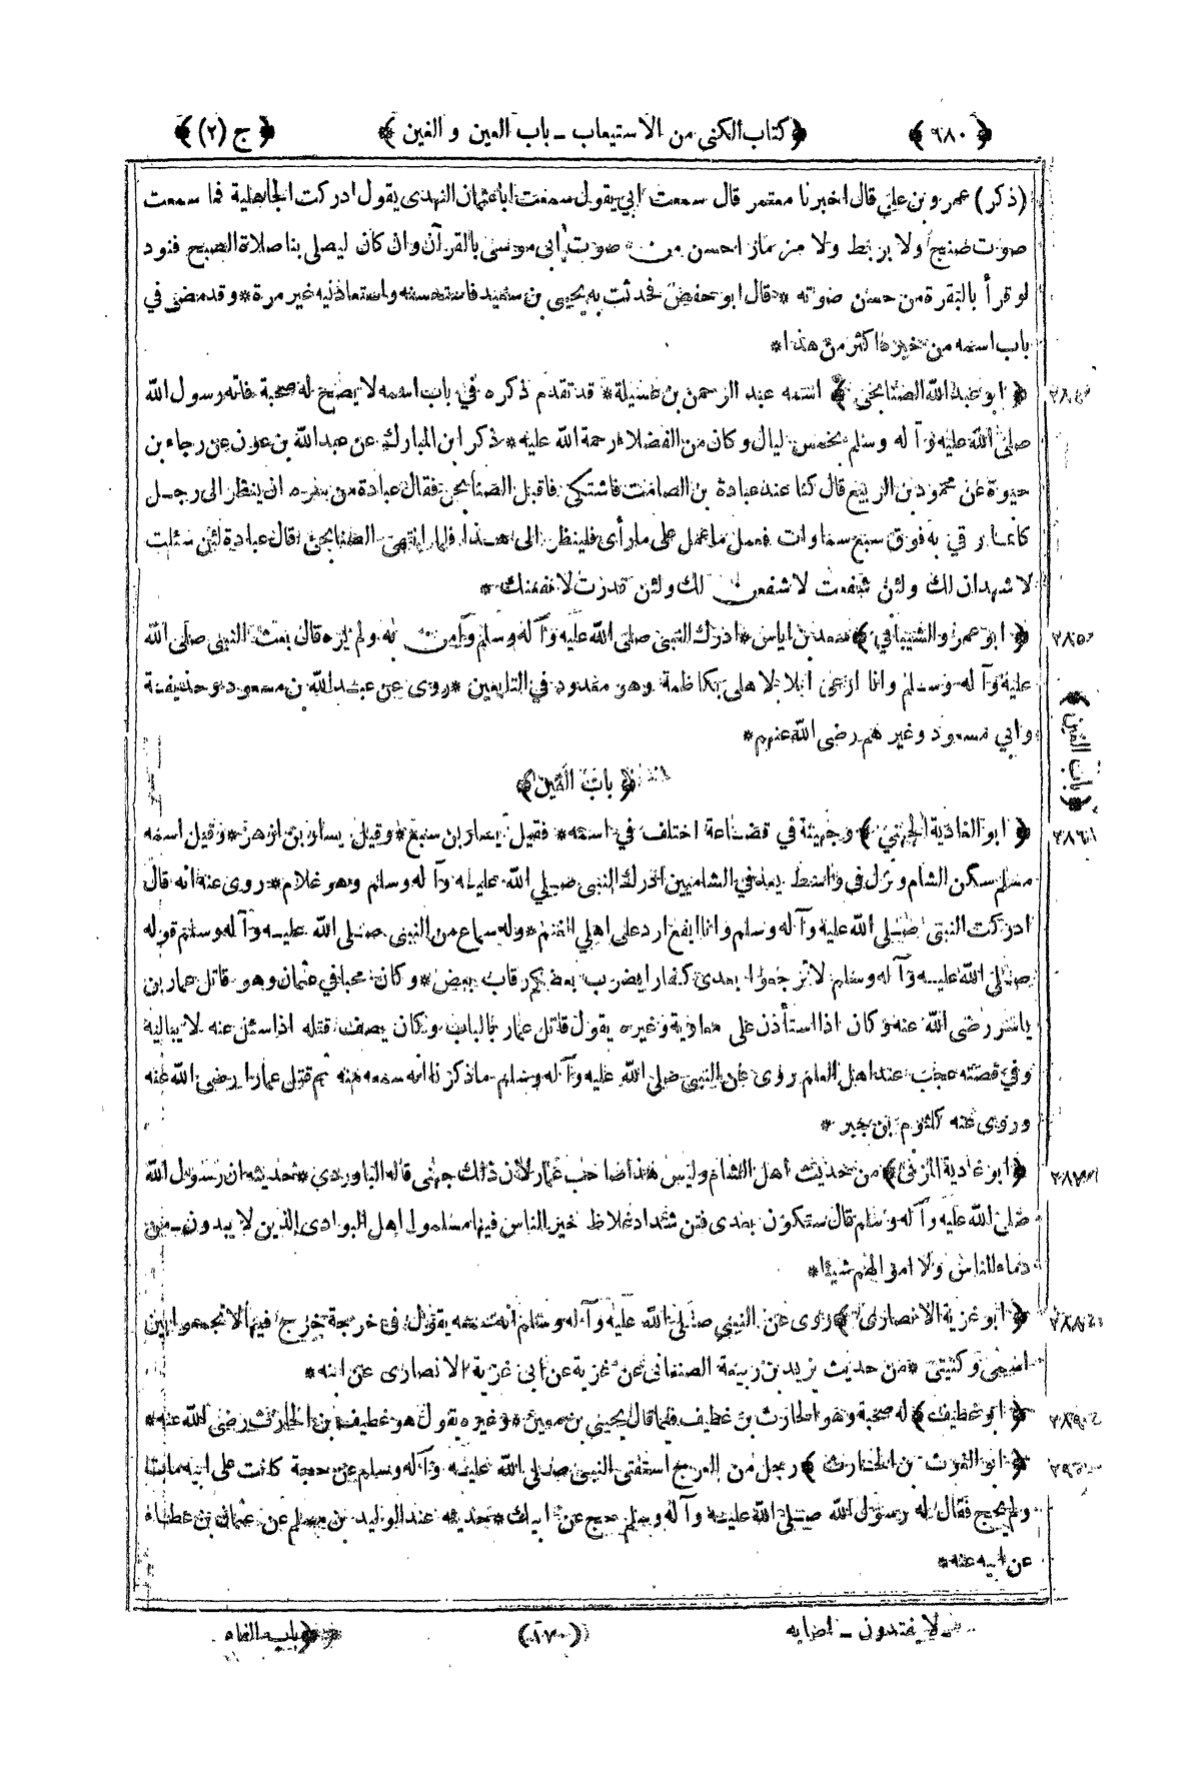 ﴿ ٦٨٠ ﴾ ﴿ كتاب الكنى من الاستيعاب ـ باب العين و الغين ﴾ ﴿ ج (٢) ﴾
(ذكر) عمرو بن علي قال اخبرنا معتمر قال سمعت ابي يقول سمعت اباعثمان النهدى يقول ادركت الجاهلية فما سمعت
صوت صنج ولا بربط ولا مزمار احسن من صوت ابى موسى بالقرآن وان كان ليصلى بنا صلاة الصبح فنود
لو قرأ بالبقرة من حسن صوته * قال ابو حفص فحدثت به يحيى بن سعيد فاستحسنه واستعادنيه غير مرة * وقد مضى في
باب اسمه من خبره اكثر من هذا *
﴿ ابو عبدالله الصنابحى ﴾ اسمه عبد الرحمن بن عسيلة * قد تقدم ذكره في باب اسمه لا يصح له صحبة فاته رسول الله
صلى الله عليه وآ له وسلم بخمس ليال وكان من الفضلاء رحمة الله عليه * ذكر ابن المبارك عن عبدالله بن عون عن رجاء بن
حيوة عن محمود بن الربيع قال كنا عند عبادة بن الصامت فاشتكى فاقبل الصنابحى فقال عبادة من سره ان ينظر الى رجل
كأنما رقي به فوق سبع سماوات فعمل ما عمل على ما رأى فلينظر الى هذا فلما انتهى الصنابحى قال عبادة لئن سئلت
لاشهدان لك ولئن شفعت لاشفعن لك ولئن قدرت لانفعنك *
﴿ ابو عمرو الشيباني ﴾ سعد بن اياس * ادرك النبى صلى الله عليه وآ له وسلم وآمن به ولم يره قال بعث النبى صلى الله
عليه وآ له وسلم وانا ارعى ابلا لاهلى بكاظمة وهو معدود في التابعين * روى عن عبدالله بن مسعود وحذيفة
وابي مسعود وغيرهم رضى الله عنهم *
﴿ باب الغين ﴾
﴿ باب الغين ﴾
﴿ ابو الغادية الجهني ﴾ وجهينة في قضاعة اختلف في اسمه * فقيل يسار بن سبع * وقيل يسار بن ازهر * وقيل اسمه
مسلم سكن الشام ونزل في واسط يعد في الشاميين ادرك النبى صلى الله عليه وآ له وسلم وهو غلام * روى عنه انه قال
ادركت النبى صلى الله عليه وآ له وسلم وانا ايفع ارد على اهلي الغنم * وله سماع من النبى صلى الله عليه وآ له وسلم قوله
صلى الله عليه وآ له وسلم لا ترجعوا بعدى كفارا يضرب بعضكم رقاب بعض * وكان محبا في عثمان وهو قاتل عمار بن
ياسر رضى الله عنه وكان اذا استأذن على معاوية وغيره يقول قاتل عمار بالباب وكان يصف قتله اذا سئل عنه لا يباليه
وفي قصته عجب عند اهل العلم روى عن النبى صلى الله عليه وآ له وسلم ما ذكرنا انه سمعه منه ثم قتل عمارا رضى الله عنه
وروى عنه كلثوم بن جبر *
﴿ ابو غادية المزنى ﴾ من حديث اهل الشام وليس هذا صاحب عمار لان ذلك جهنى قاله الباوردي * حديثه ان رسول الله
صلى الله عليه وآ له وسلم قال ستكون بعدى فتن شداد غلاظ خير الناس فيها مسلموا اهل البوادى الذين لا يبدون من
دماء الناس ولا اموالهم شيئا *
﴿ ابو غزية الانصارى ﴾ روى عن النبي صلى الله عليه وآ له وسلم انه سمعه يقول فى خرجة خرج فيها لا تجمعوا بين
اسمى وكنيتى * من حديث يزيد بن ربيعة الصنعانى عن غزية عن ابى غزية الانصارى عن ابنه *
﴿ ابو غطيف ﴾ له صحبة وهو الحارث بن غطيف فيما قال يحيى بن معين * وغيره يقول هو غطيف بن الحارث رضى الله عنه *
﴿ ابو الغوث بن الحارث ﴾ رجل من العرج استفتى النبى صلى الله عليه وآ له وسلم عن حجة كانت على ابيه مات
ولم يحج فقال له رسول الله صلى الله عليه وآ له وسلم حج عن ابيك * حديثه عند الوليد بن مسلم عن عثمان بن عطاء
عن ابيه عنه *
لا يفتدون ـ اصابه (١٧٠) ﴿ باب الفاء